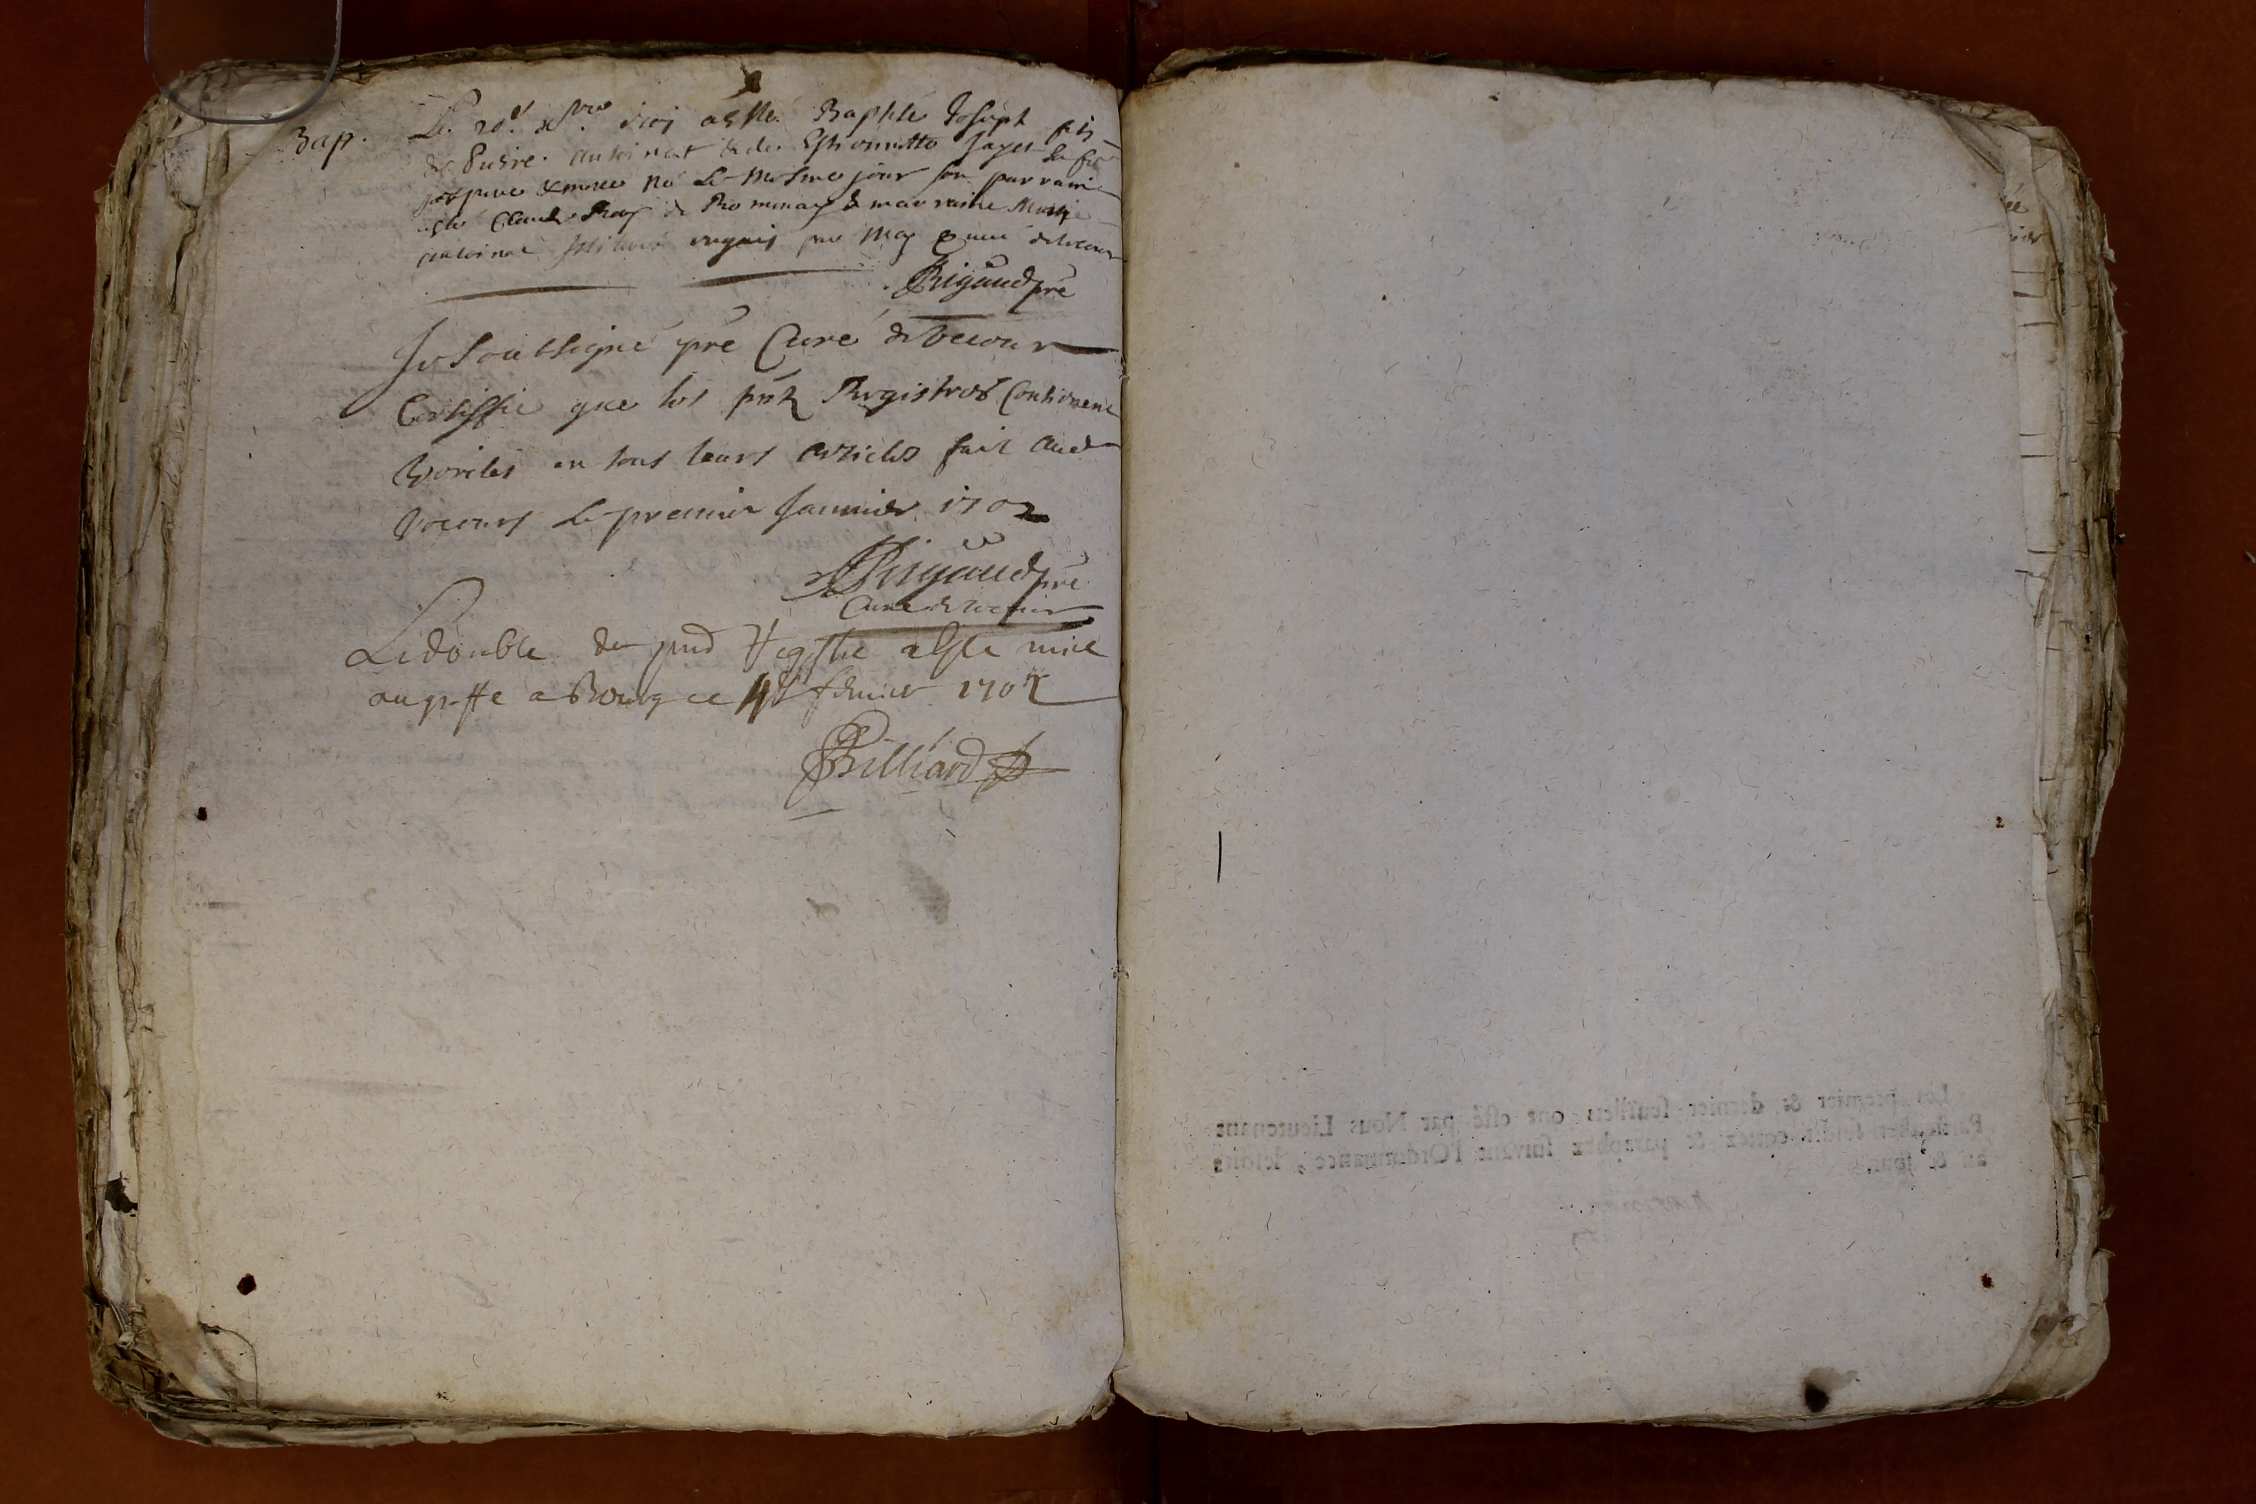 Bap. Le 20e xbre 1701 a esté Baptisé Joseph fils
de Pierre Antoinat & de Estiennette Jayet sa fe
pere & mere né Le mesme jour son parrain
esté Claude Roy de Romenay & marraine Marie
Antoinat par Moy Curé de Vecour
Rigaud pre
Je Soubsigné pre Curé de Vecour
Certiffie que les pnts Registres Contiennent
verités en tous leurs articles fait aud
Vecours Le premier Jannier 1702
Rigaud pre
Curé de Vecour
Le double du pnt Regstre a Este mise
au greffe a Bourg ce fevrier 1702
Billiard
Les premier & dernier feuillets ont esté par Nous Lieutenant
Particulier susdit cottez & paraphez suivant l'Ordonnance, lesdits
an & jour.